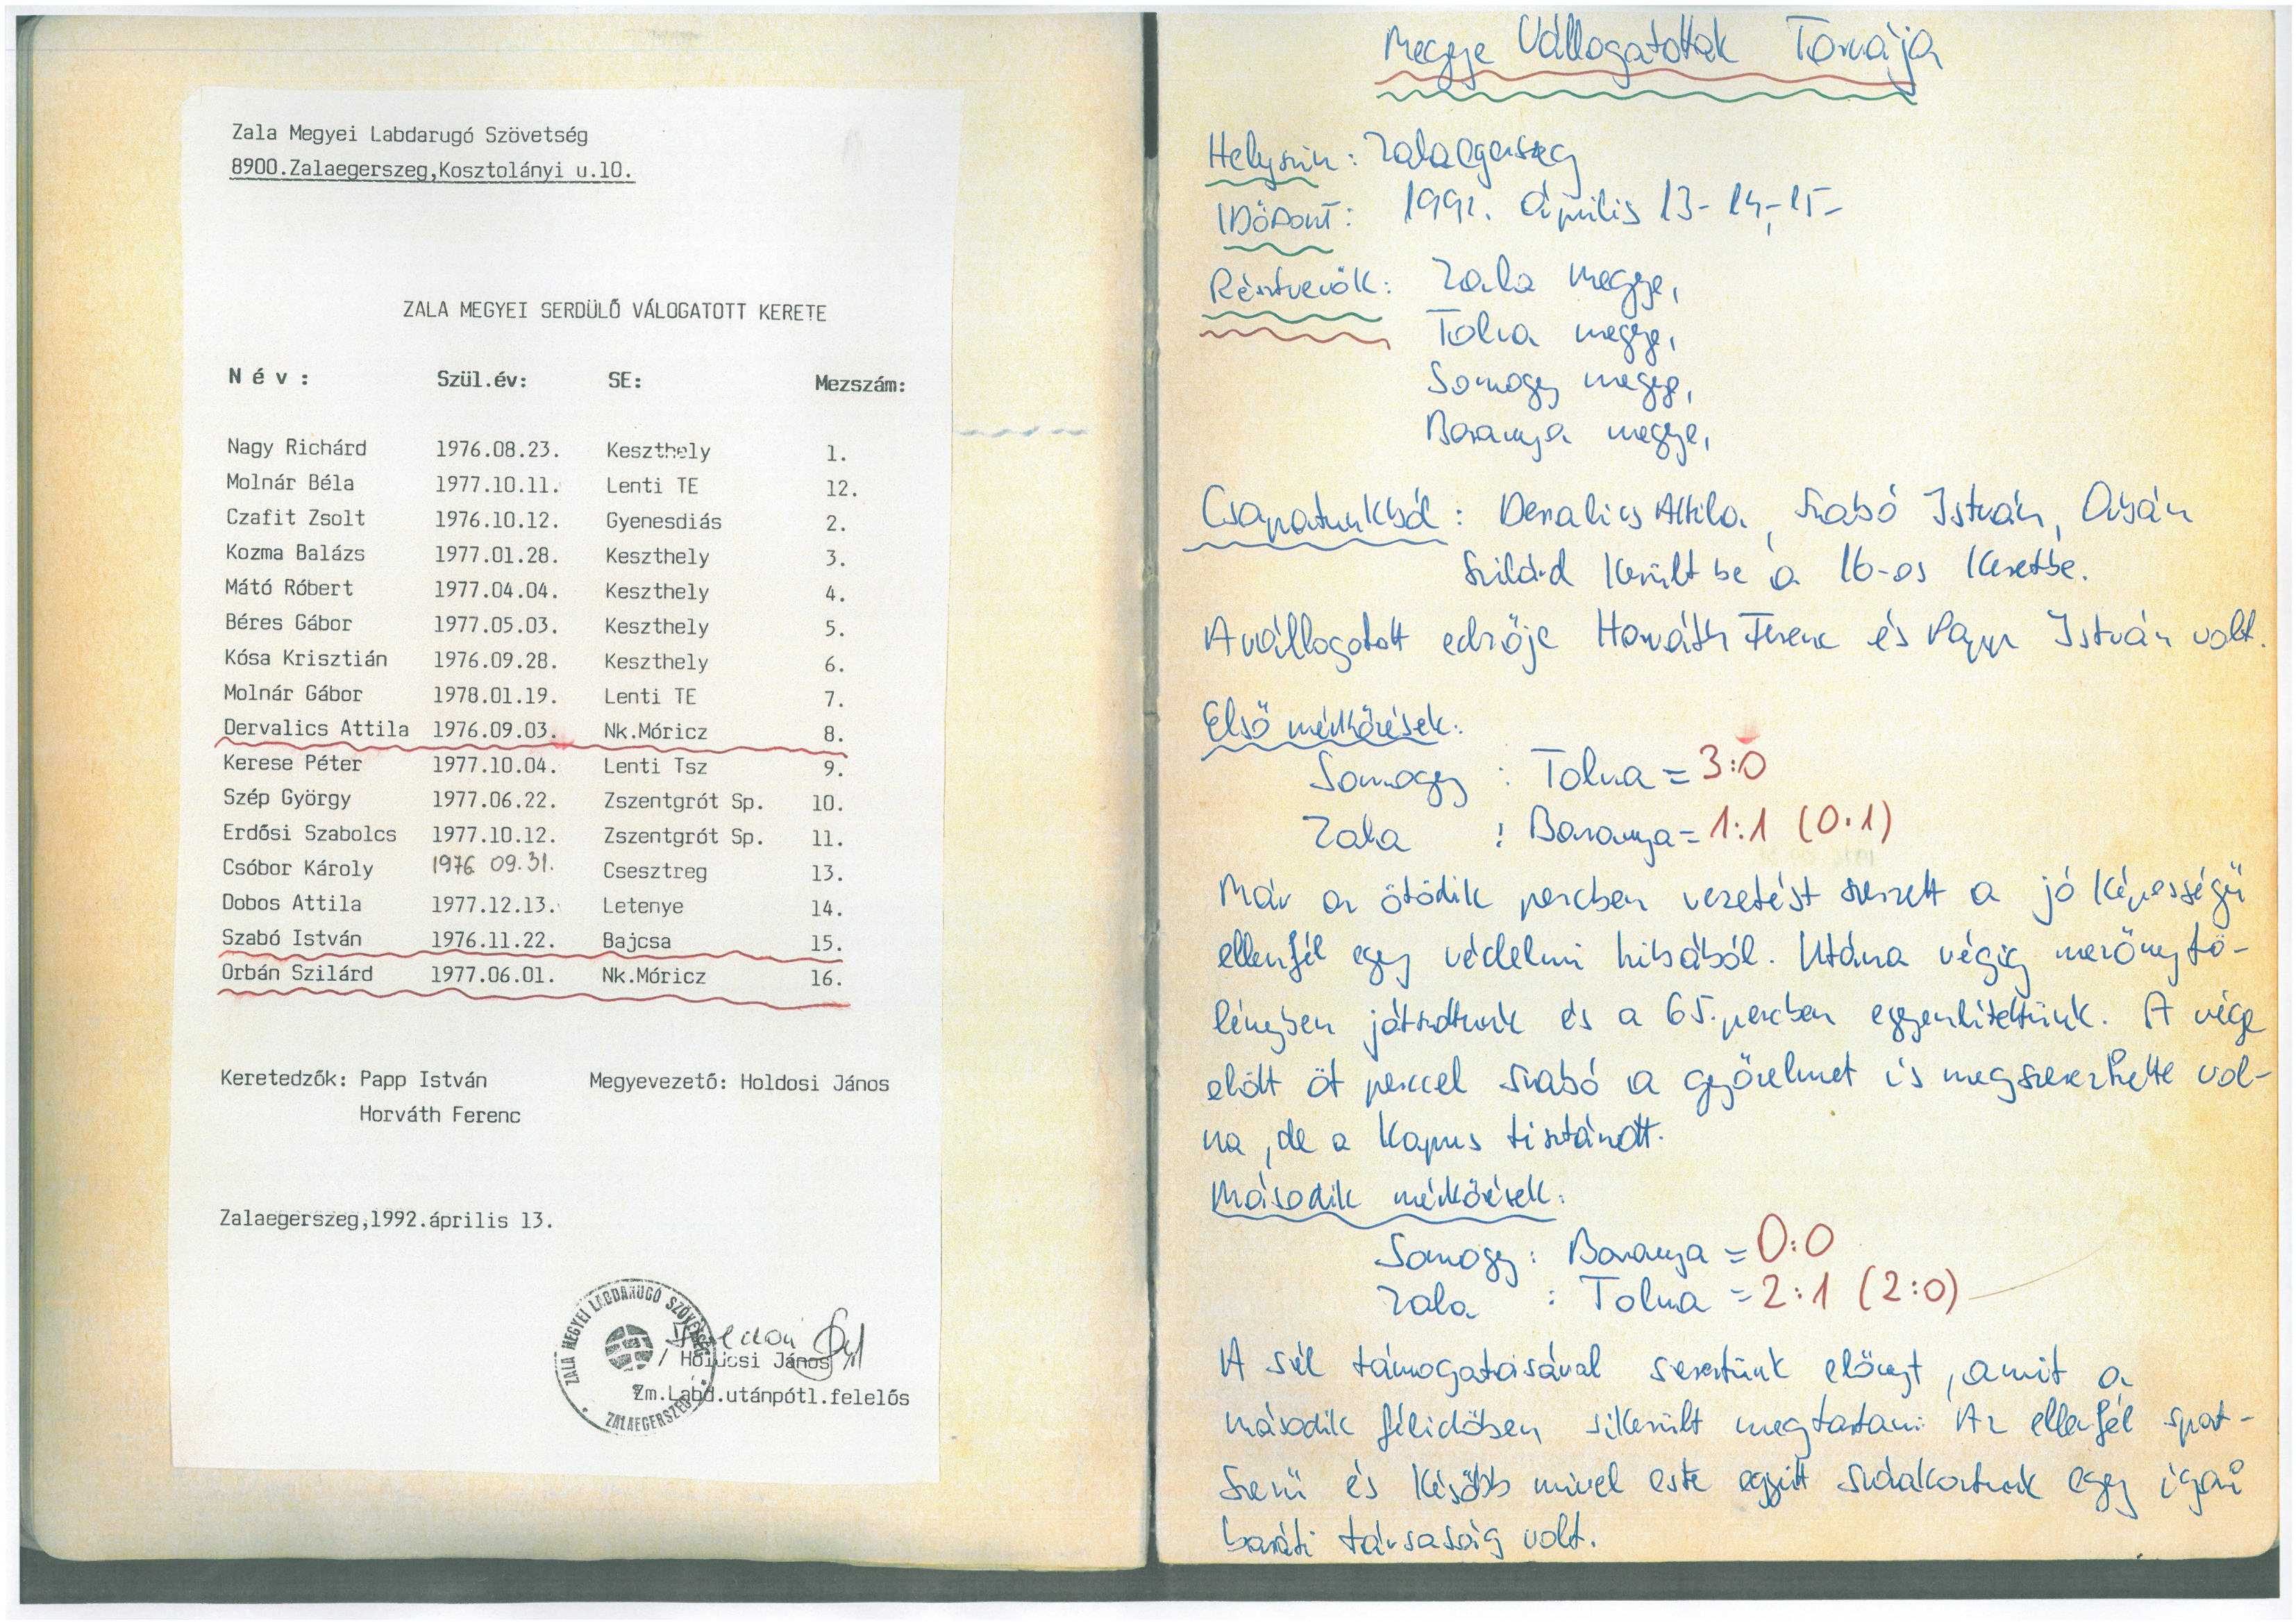 Zala Megyei Labdarugó Szövetség
8900.Zalaegerszeg,Kosztolányi u.10.
ZALA MEGYEI SERDÜLŐ VÁLOGATOTT KERETE
Név: Szül.év: SE: Mezszám:
Nagy Richárd 1976.08.23. Keszthely 1.
Molnár Béla 1977.10.11. Lenti TE 12.
Czafit Zsolt 1976.10.12. Gyenesdiás 2.
Kozma Balázs 1977.01.28. Keszthely 3.
Mátó Róbert 1977.04.04. Keszthely 4.
Béres Gábor 1977.05.03. Keszthely 5.
Kósa Krisztián 1976.09.28. Keszthely 6.
Molnár Gábor 1978.01.19. Lenti TE 7.
Dervalics Attila 1976.09.03. Nk.Móricz 8.
Kerese Péter 1977.10.04. Lenti Tsz 9.
Szép György 1977.06.22. Zszentgrót Sp. 10.
Erdősi Szabolcs 1977.10.12. Zszentgrót Sp. 11.
Csóbor Károly 1976 09.31. Csesztreg 13.
Dobos Attila 1977.12.13. Letenye 14.
Szabó István 1976.11.22. Bajcsa 15.
Orbán Szilárd 1977.06.01. Nk.Móricz 16.
Keretedzők: Papp István Megyevezető: Holdosi János
Horváth Ferenc
Zalaegerszeg,1992.április 13.
ZALA MEGYEI LABDARUGÓ SZÖVETSÉG
ZALAEGERSZEG
/ Holdosi János /
Zm.Labd.utánpótl.felelős
Megye Válogatottak Tornája
Helyszín: Zalaegerszeg
IDőpont: 1992. április 13-14-15-
Résztvevők: Zala megye,
Tolna megye,
Somogy megye,
Baranya megye,
Csapatunkból: Dervalics Attila, Szabó István, Orbán
Szilárd került be a 16-os keretbe.
A válogatott edzője Horváth Ferenc és Papp István volt.
Első mérkőzések:
Somogy : Tolna = 3:0
Zala : Baranya = 1:1 (0:1)
Már az ötödik percben vezetést szerzett a jó képességű
ellenfél egy védelmi hibából. Utána végig mezőnyfö-
lényben játszottunk és a 65. percben egyenlítettünk. A vége
előtt öt perccel Szabó a győzelmet is megszerezhette vol-
na, de a kapus tisztázott.
Második mérkőzések:
Somogy : Baranya = 0:0
Zala : Tolna = 2:1 (2:0)
A szél támogatásával szereztünk előnyt, amit a
második félidőben sikerült megtartani. Az ellenfél sport-
szerű és később mivel este együtt szórakoztunk egy igazi
baráti társaság volt.